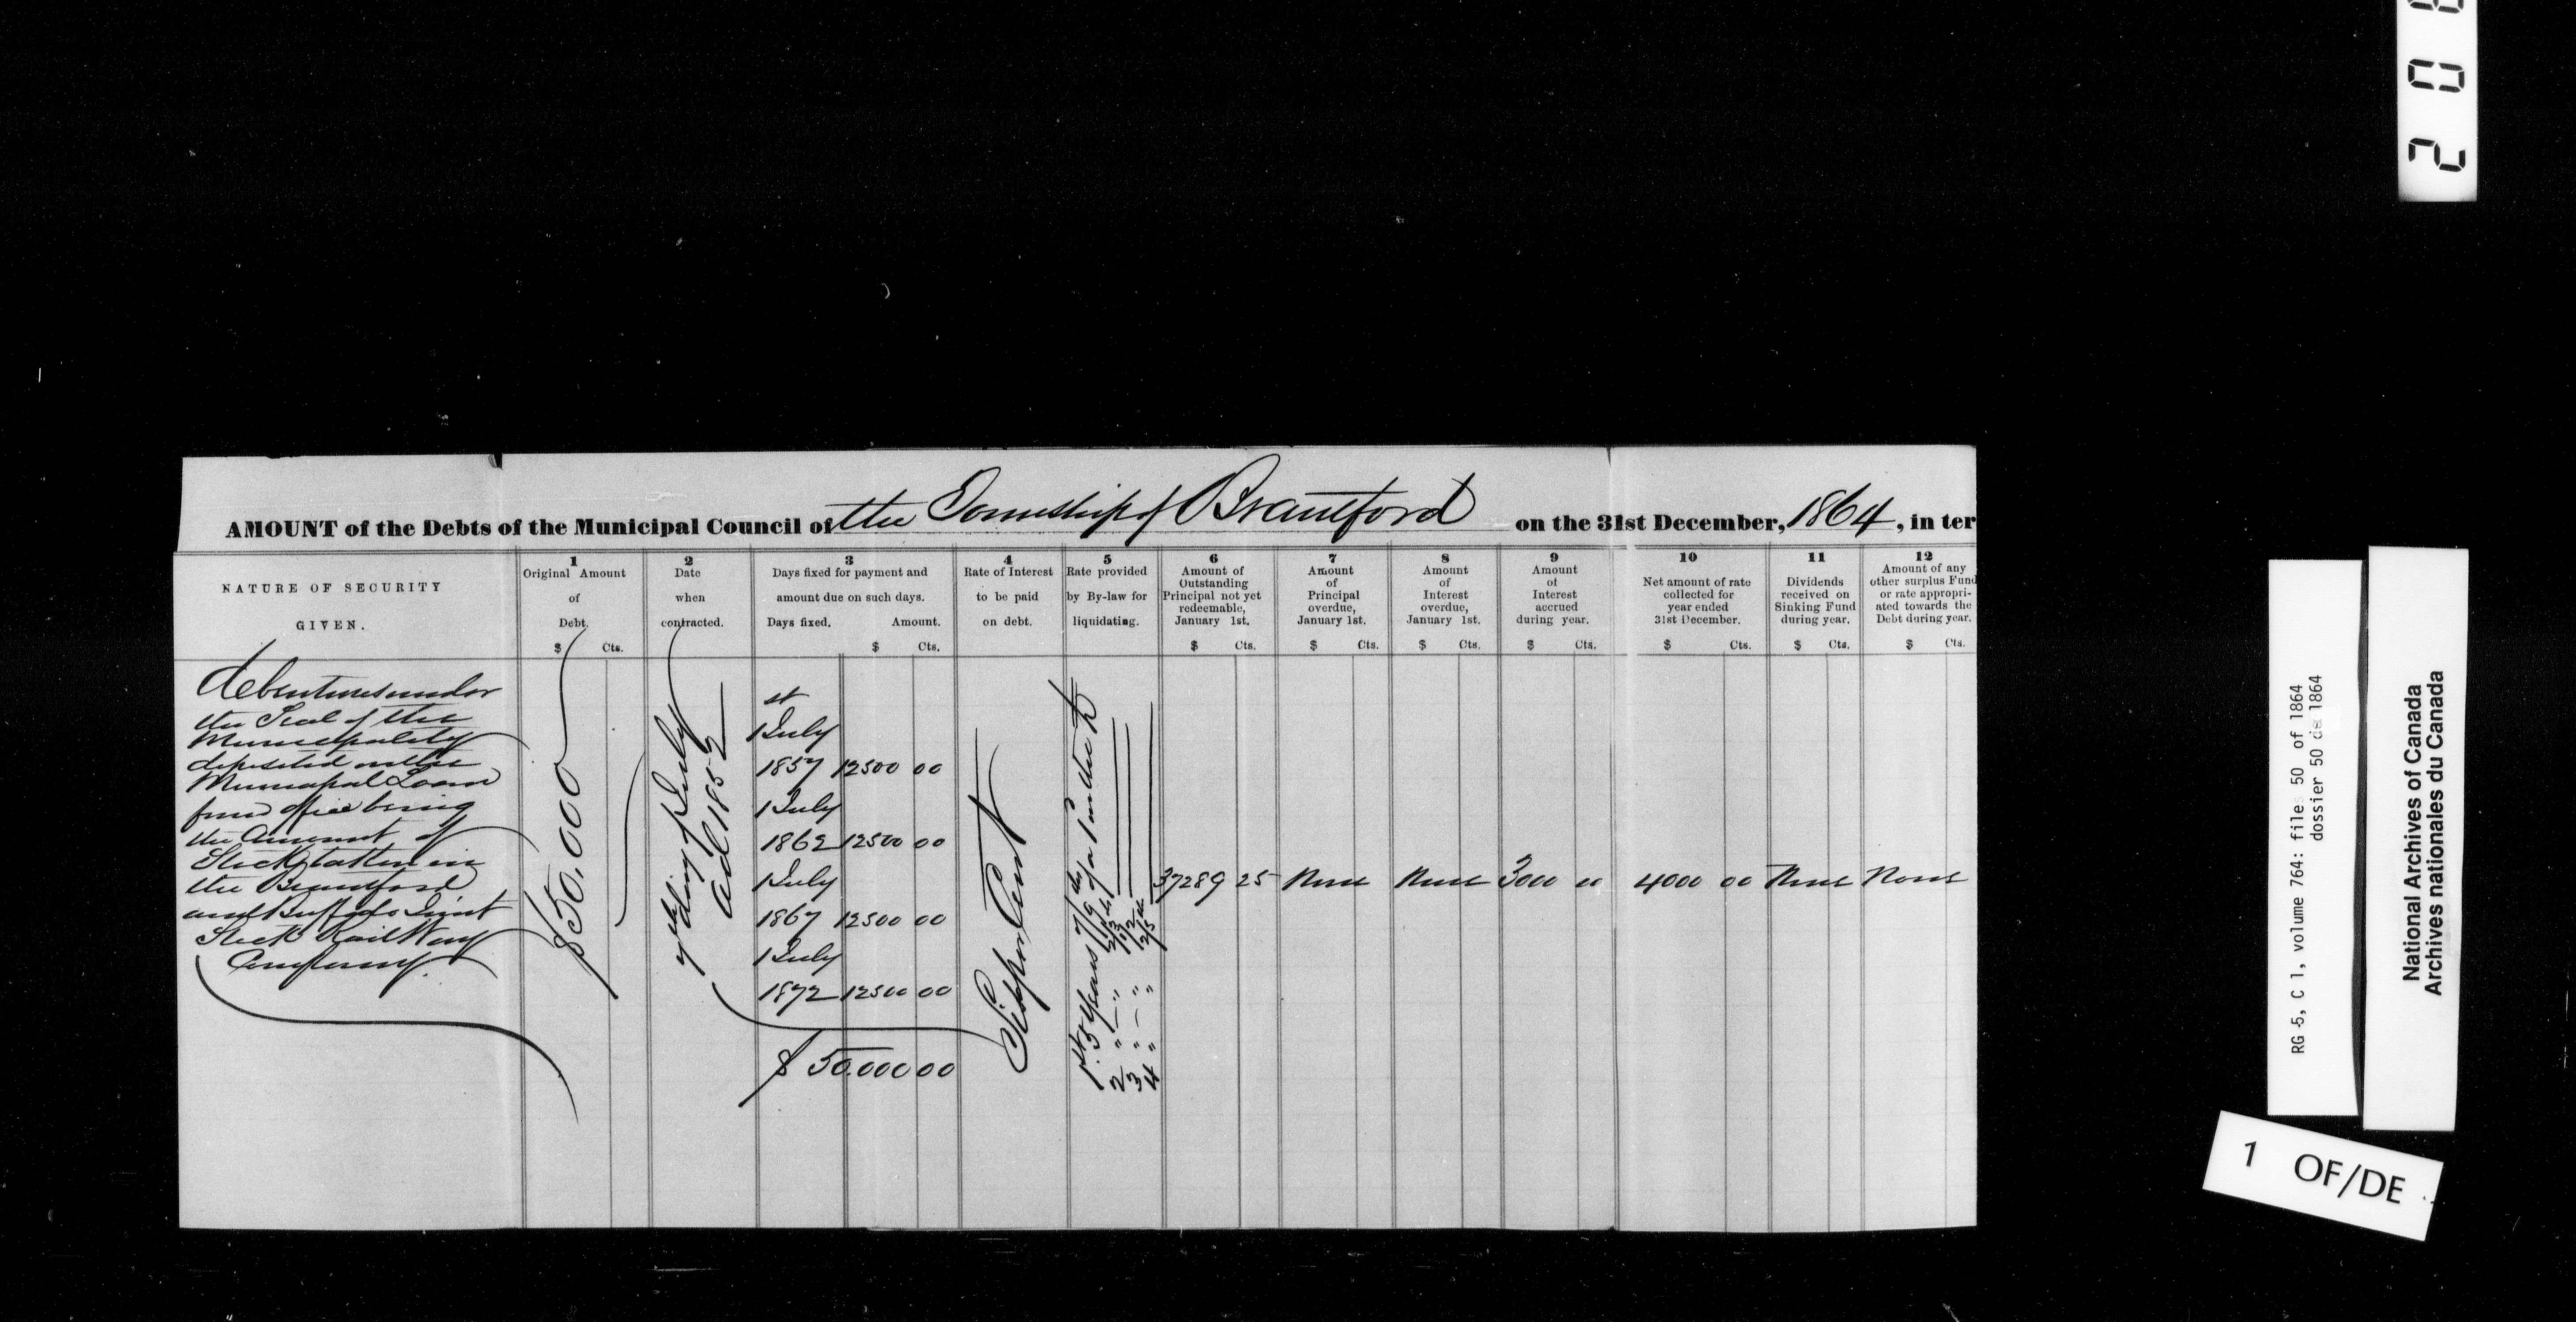 AMOUNT of the Debts of the Municipal Council of the Township of Brantford on the 31st December, 1864, in ter
NATURE OF SECURITY
GIVEN.
1
Original Amount
of
Debt.
$ Cts.
2
Date
when
contracted.
3
Days fixed for payment and
amount due on such days.
Days fixed. Amount.
$ Cts.
4
Rate of Interest
to be paid
on debt.
5
Rate provided
by By-law for
liquidating.
6
Amount of
Outstanding
Principal not yet
redeemable,
January 1st.
$ Cts.
7
Amount
of
Principal
overdue,
January 1st.
$ Cts.
8
Amount
of
Interest
overdue,
January 1st.
$ Cts.
9
Amount
of
Interest
accrued
during year.
$ Cts.
10
Net amount of rate
collected for
year ended
31st December.
$ Cts.
11
Dividends
received on
Sinking Fund
during year.
$ Cts.
12
Amount of any
other surplus Fund
or rate appropri-
ated towards the
Debt during year.
$ Cts.
debentures under
the Seal of the
Municipality
deposited in the
Municipal Loan
fund office being
the Amount of
Stock taken in
the Brantford
and Buffalo Joint
Stock Rail Way
Company.
$50,000
7th day of July
ad 1852
st
1 July
1857 12500 00
1 July
1862 12500 00
1 July
1867 12500 00
1 July
1872 12500 00
$ 50.000 00
Six per Cent
1st 5 years
2 " "
3 " "
4 " "
37289 25
None
None
3000 00
4000 00
None
None
2 0 8
RG 5, C 1, volume 764: file 50 of 1864
dossier 50 de 1864
National Archives of Canada
Archives nationales du Canada
1 OF/DE